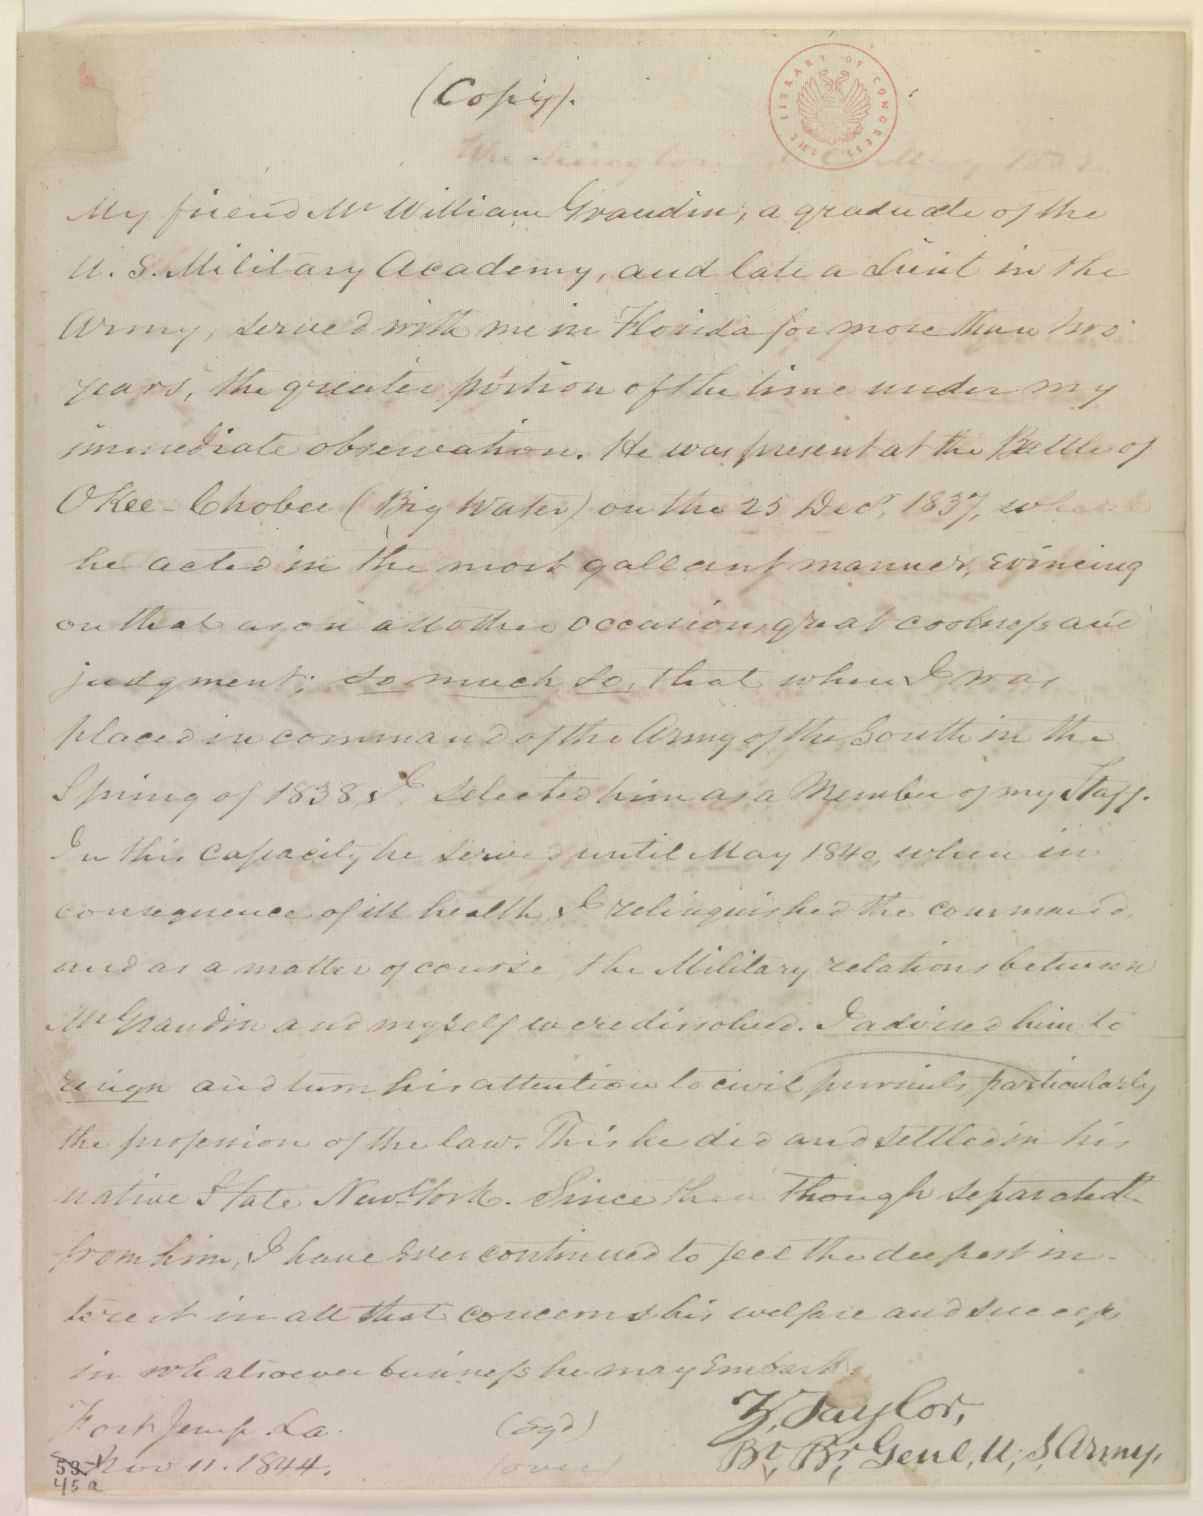 (Copy).
THE LIBRARY OF CONGRESS
Washington May 1852.
My friend Mr William Grandin, a graduate of the
U. S. Military Academy, and late a Lieut in the
Army, served with me in Florida for more than two
years, the greater portion of the time under my
immediate observation. He was present at the Battle of
OKee-Chobee (Big Water) on the 25 Decr, 1837, where
he acted in the most gallant manner, evincing
on that as on all other occasions, great coolness and
judgment; so much so, that when I was
placed in command of the Army of the South in the
Spring of 1838, I selected him as a Member of my Staff.
In this capacity he served until May 1840, when in
consequence of ill health, I relinquished the command,
and as a matter of course, the Military relations between
Mr Grandin and myself were dissolved. I advised him to
resign and turn his attention to civil pursuits, particularly
the profession of the law. This he did and settled in his
native State New York. Since then though separated
from him, I have ever continued to feel the deepest in-
terest in all that concerns his welfare and success
in whatsoever business he may Embark.
Fort Jesup. La. (Sgd) Z, Taylor,
Nov 11. 1844. (over) Bt, Br, Genl, U, S, Army,
58
45a